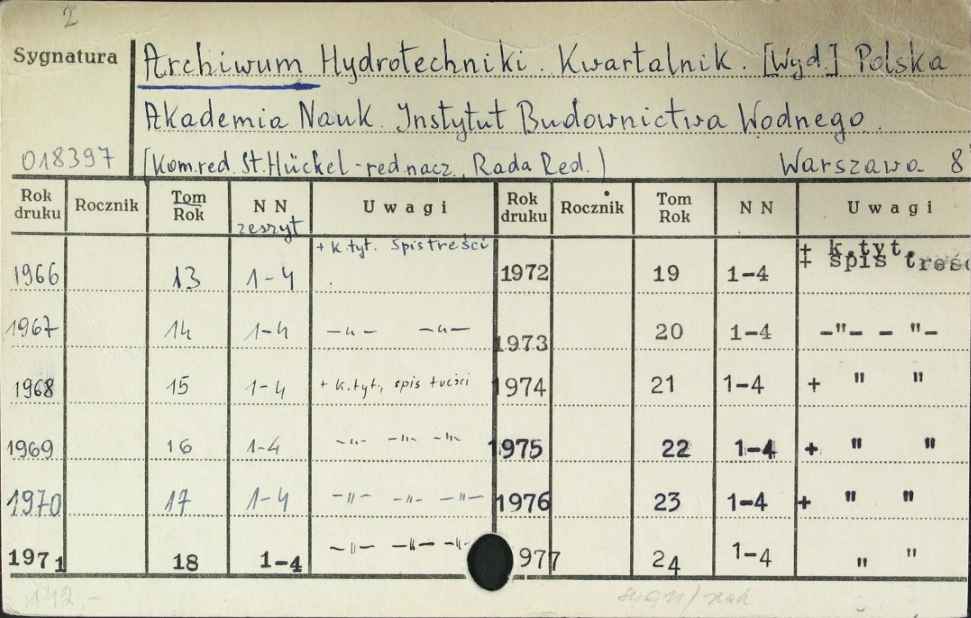 2
Sygnatura
Archiwum Hydrotechniki. Kwartalnik. [Wyd.] Polska
Akademia Nauk. Instytut Budownictwa Wodnego.
018397 (Kom.red. St. Hückel - red.nacz., Rada Red.) Warszawa 8°
Rok druku Rocznik Tom Rok NN zeszyt Uwagi Rok druku Rocznik Tom Rok NN Uwagi
1966 13 1-4 + k.tyt. Spis treści 1972 19 1-4 + k.tyt. + spis treśc
1967 14 1-4 -"- -"- 1973 20 1-4 -"- - "-
1968 15 1-4 + k.tyt., spis treści 1974 21 1-4 + " "
1969 16 1-4 -"- -"- -"- 1975 22 1-4 + " "
1970 17 1-4 -"- -"- -"- 1976 23 1-4 + " "
1971 18 1-4 -"- -"- -"- 977 24 1-4 " "